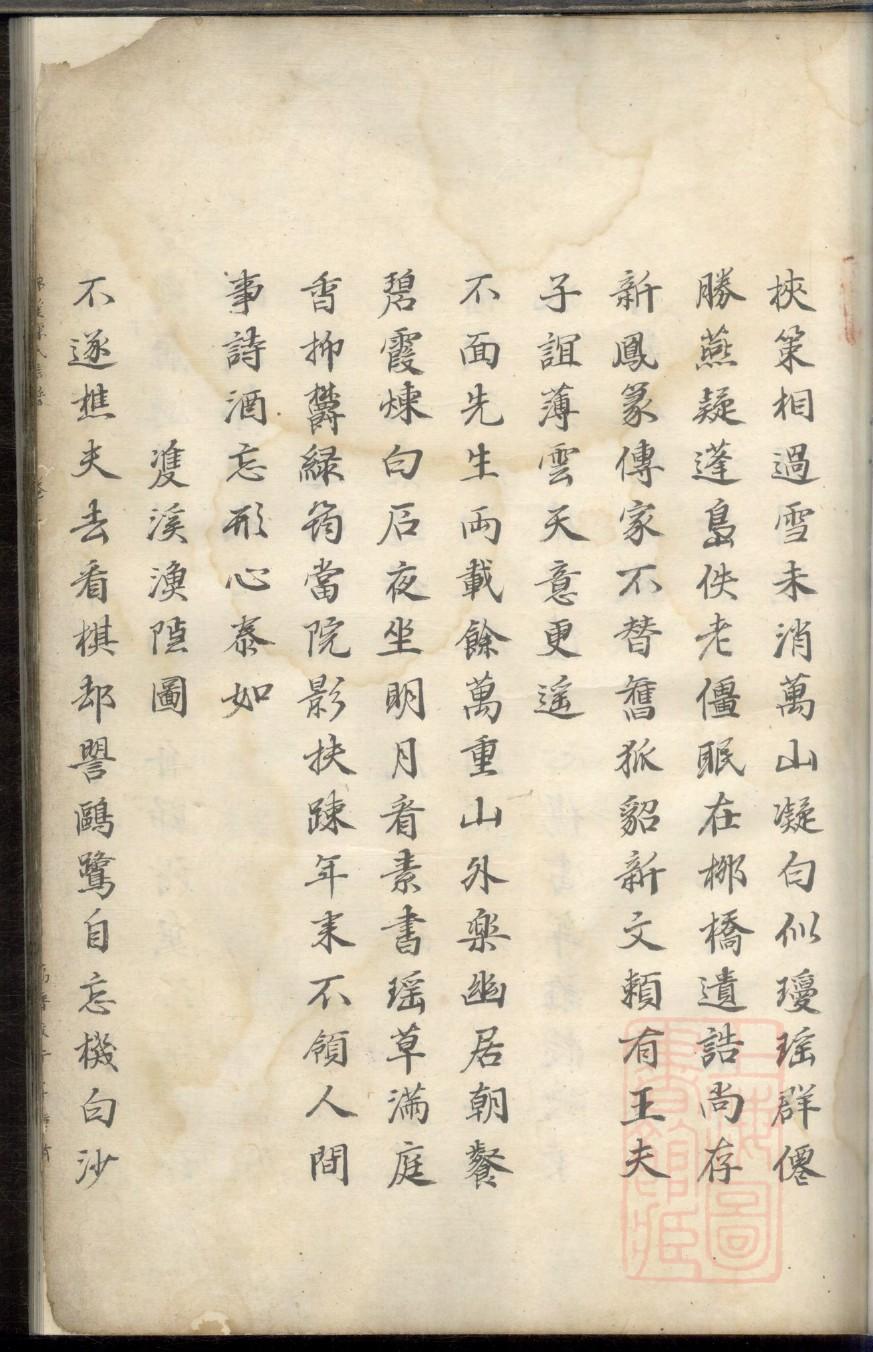 挾策相過雪未消萬山凝白似瓊瑶群僊
勝燕疑蓬島佚老僵眠在梛橋遺誥尚存
新鳳篆傳家不替舊狐貂新文頼有王夫
子誼薄雲天意更遥
不面先生両載餘萬重山外樂幽居朝餐
碧霞煉白石夜坐明月看素書瑶草滿庭
香抑欝緑筠當院影扶踈年来不領人間
事詩酒忘形心泰如
溪漁隱圖
不逐樵夫去看棋却譻鷗鷺自忘機白沙
上海圖書館藏